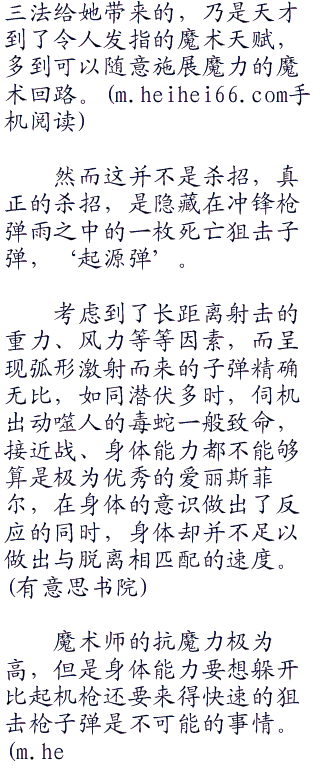 三法给她带来的，乃是天才
到了令人发指的魔术天赋，
多到可以随意施展魔力的魔
术回路。(m.heihei66.com手
机阅读)
然而这并不是杀招，真
正的杀招，是隐藏在冲锋枪
弹雨之中的一枚死亡狙击子
弹，‘起源弹’。
考虑到了长距离射击的
重力、风力等等因素，而呈
现弧形激射而来的子弹精确
无比，如同潜伏多时，伺机
出动噬人的毒蛇一般致命，
接近战、身体能力都不能够
算是极为优秀的爱丽斯菲
尔，在身体的意识做出了反
应的同时，身体却并不足以
做出与脱离相匹配的速度。
(有意思书院)
魔术师的抗魔力极为
高，但是身体能力要想躲开
比起机枪还要来得快速的狙
击枪子弹是不可能的事情。
(m.he